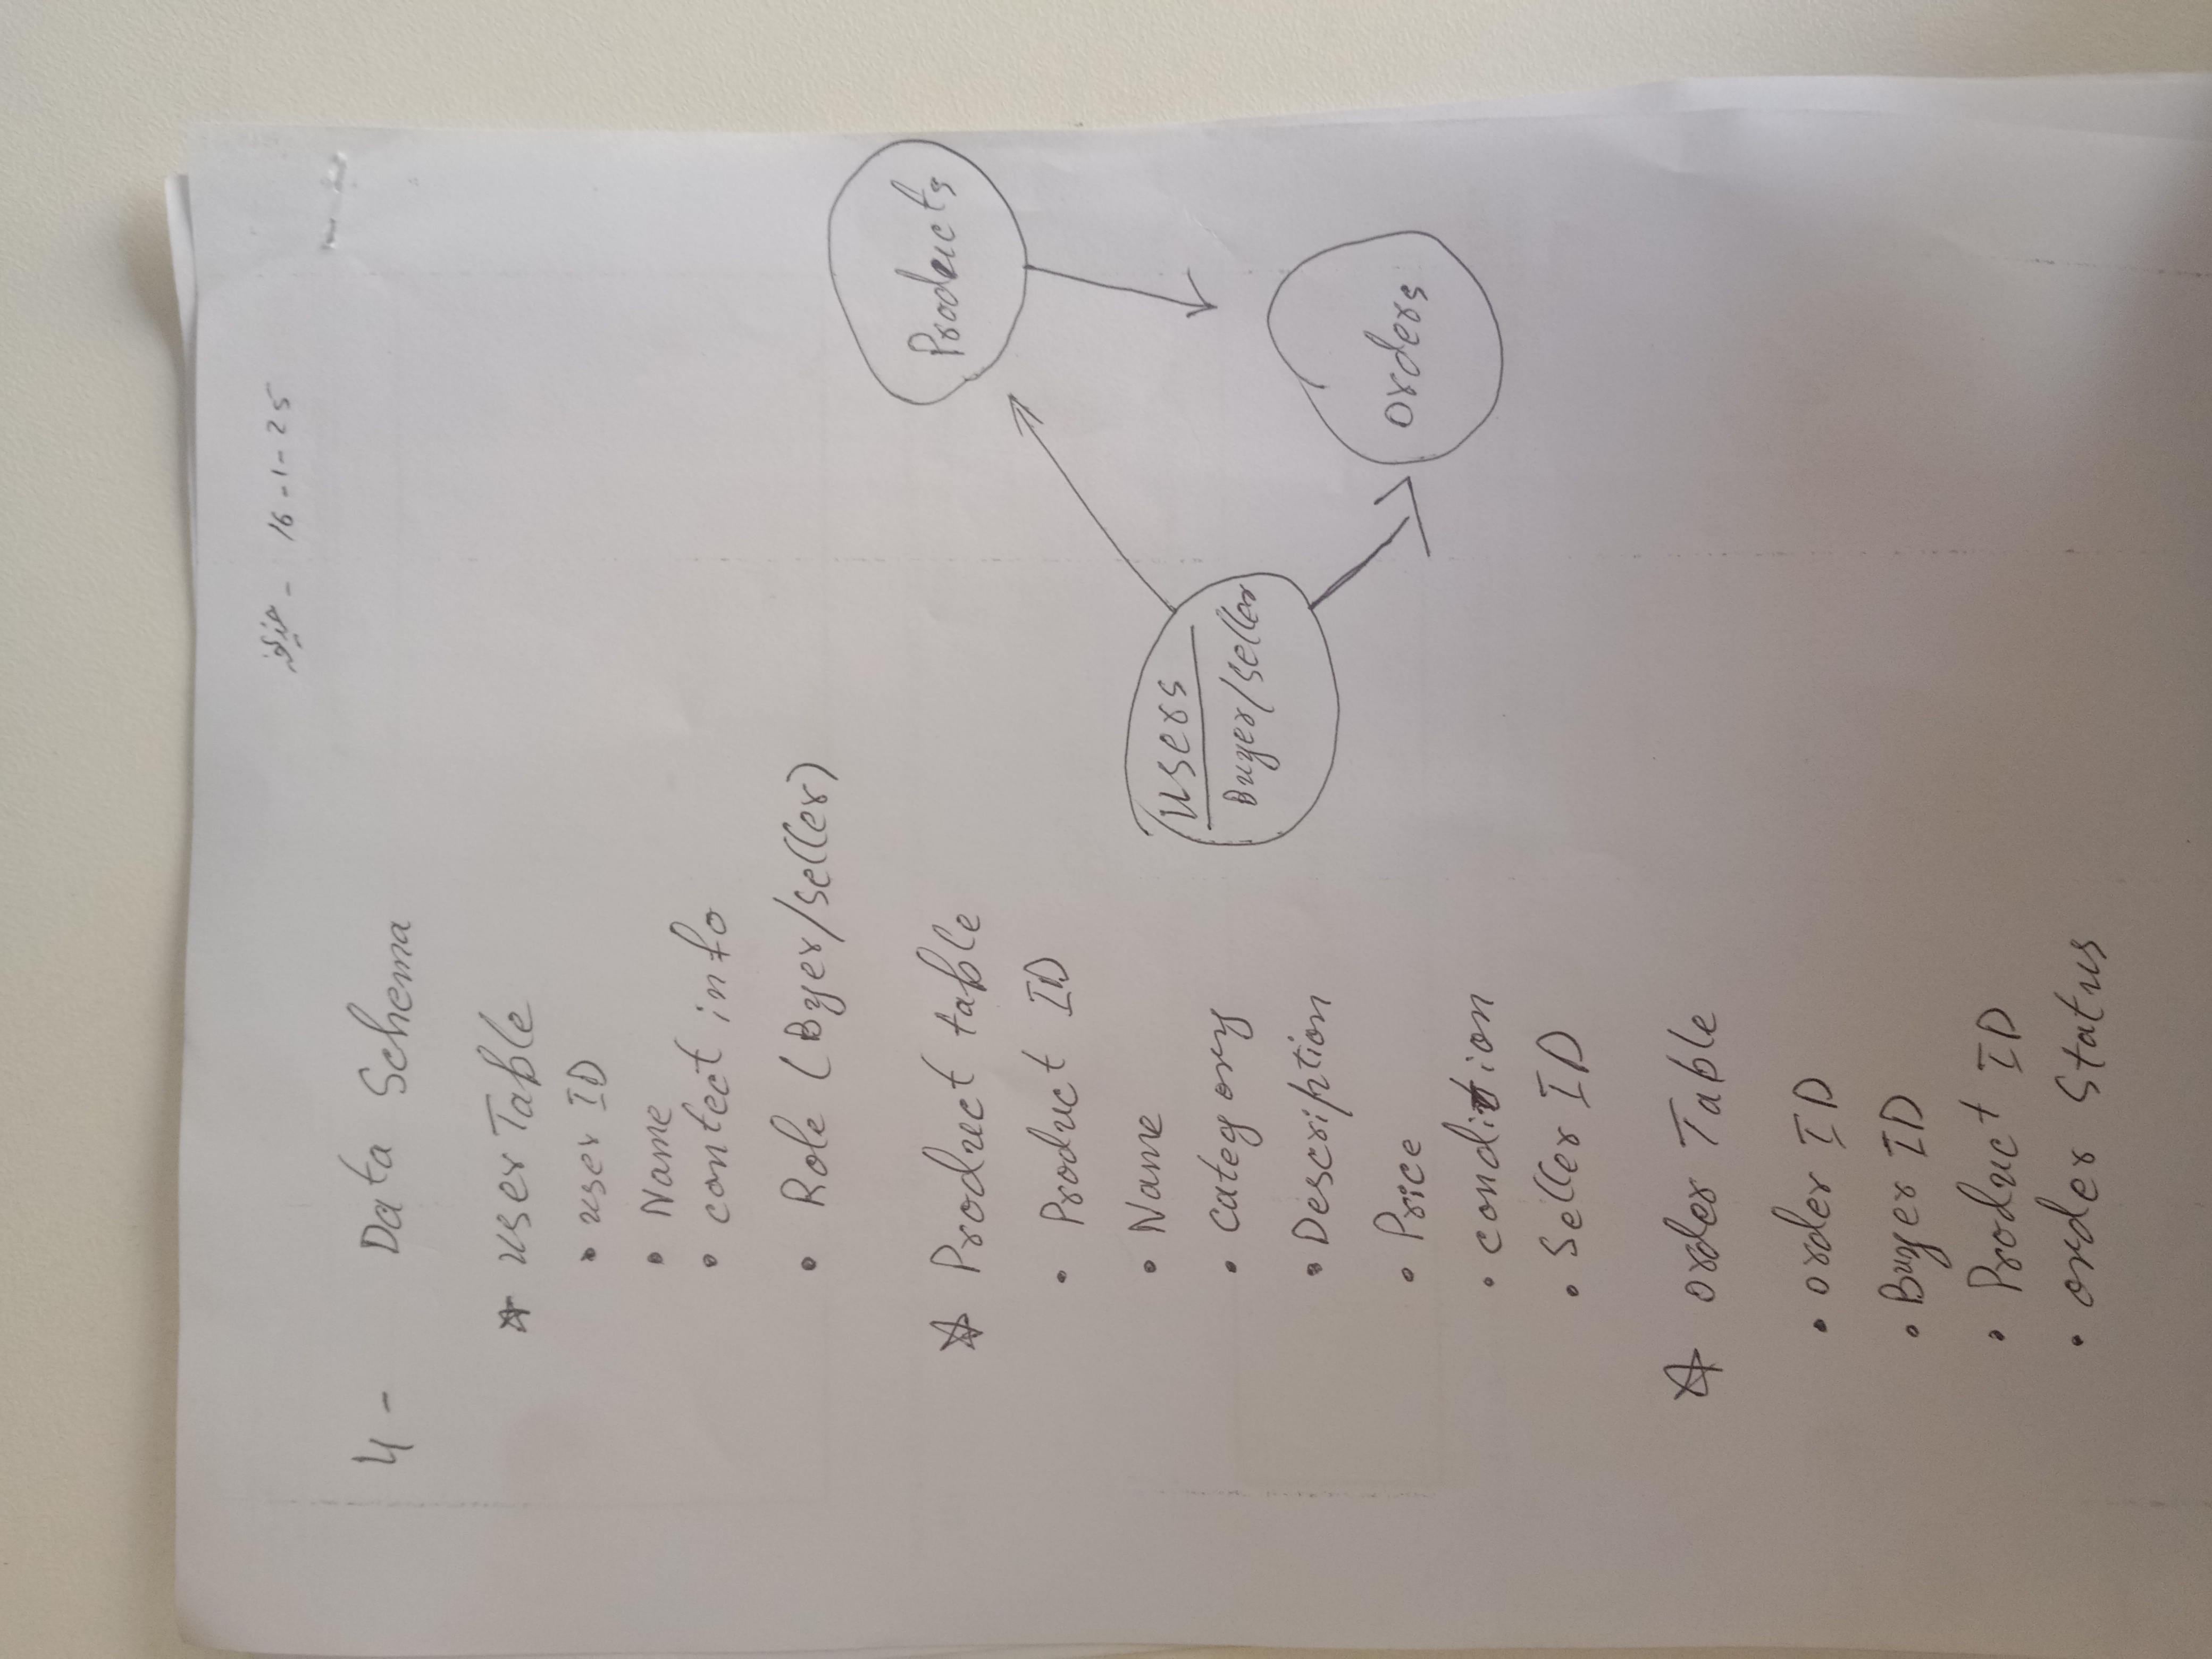 16-1-25
4- Data Schema
☆ user Table
• user ID
• Name
• contect info
• Role (Byer/seller)
☆ Product table
• Product ID
• Name
• category
• Description
• Price
• condition
• Seller ID
☆ order Table
• order ID
• Buyer ID
• Product ID
• order Status
Products
users
Buyer/seller
orders